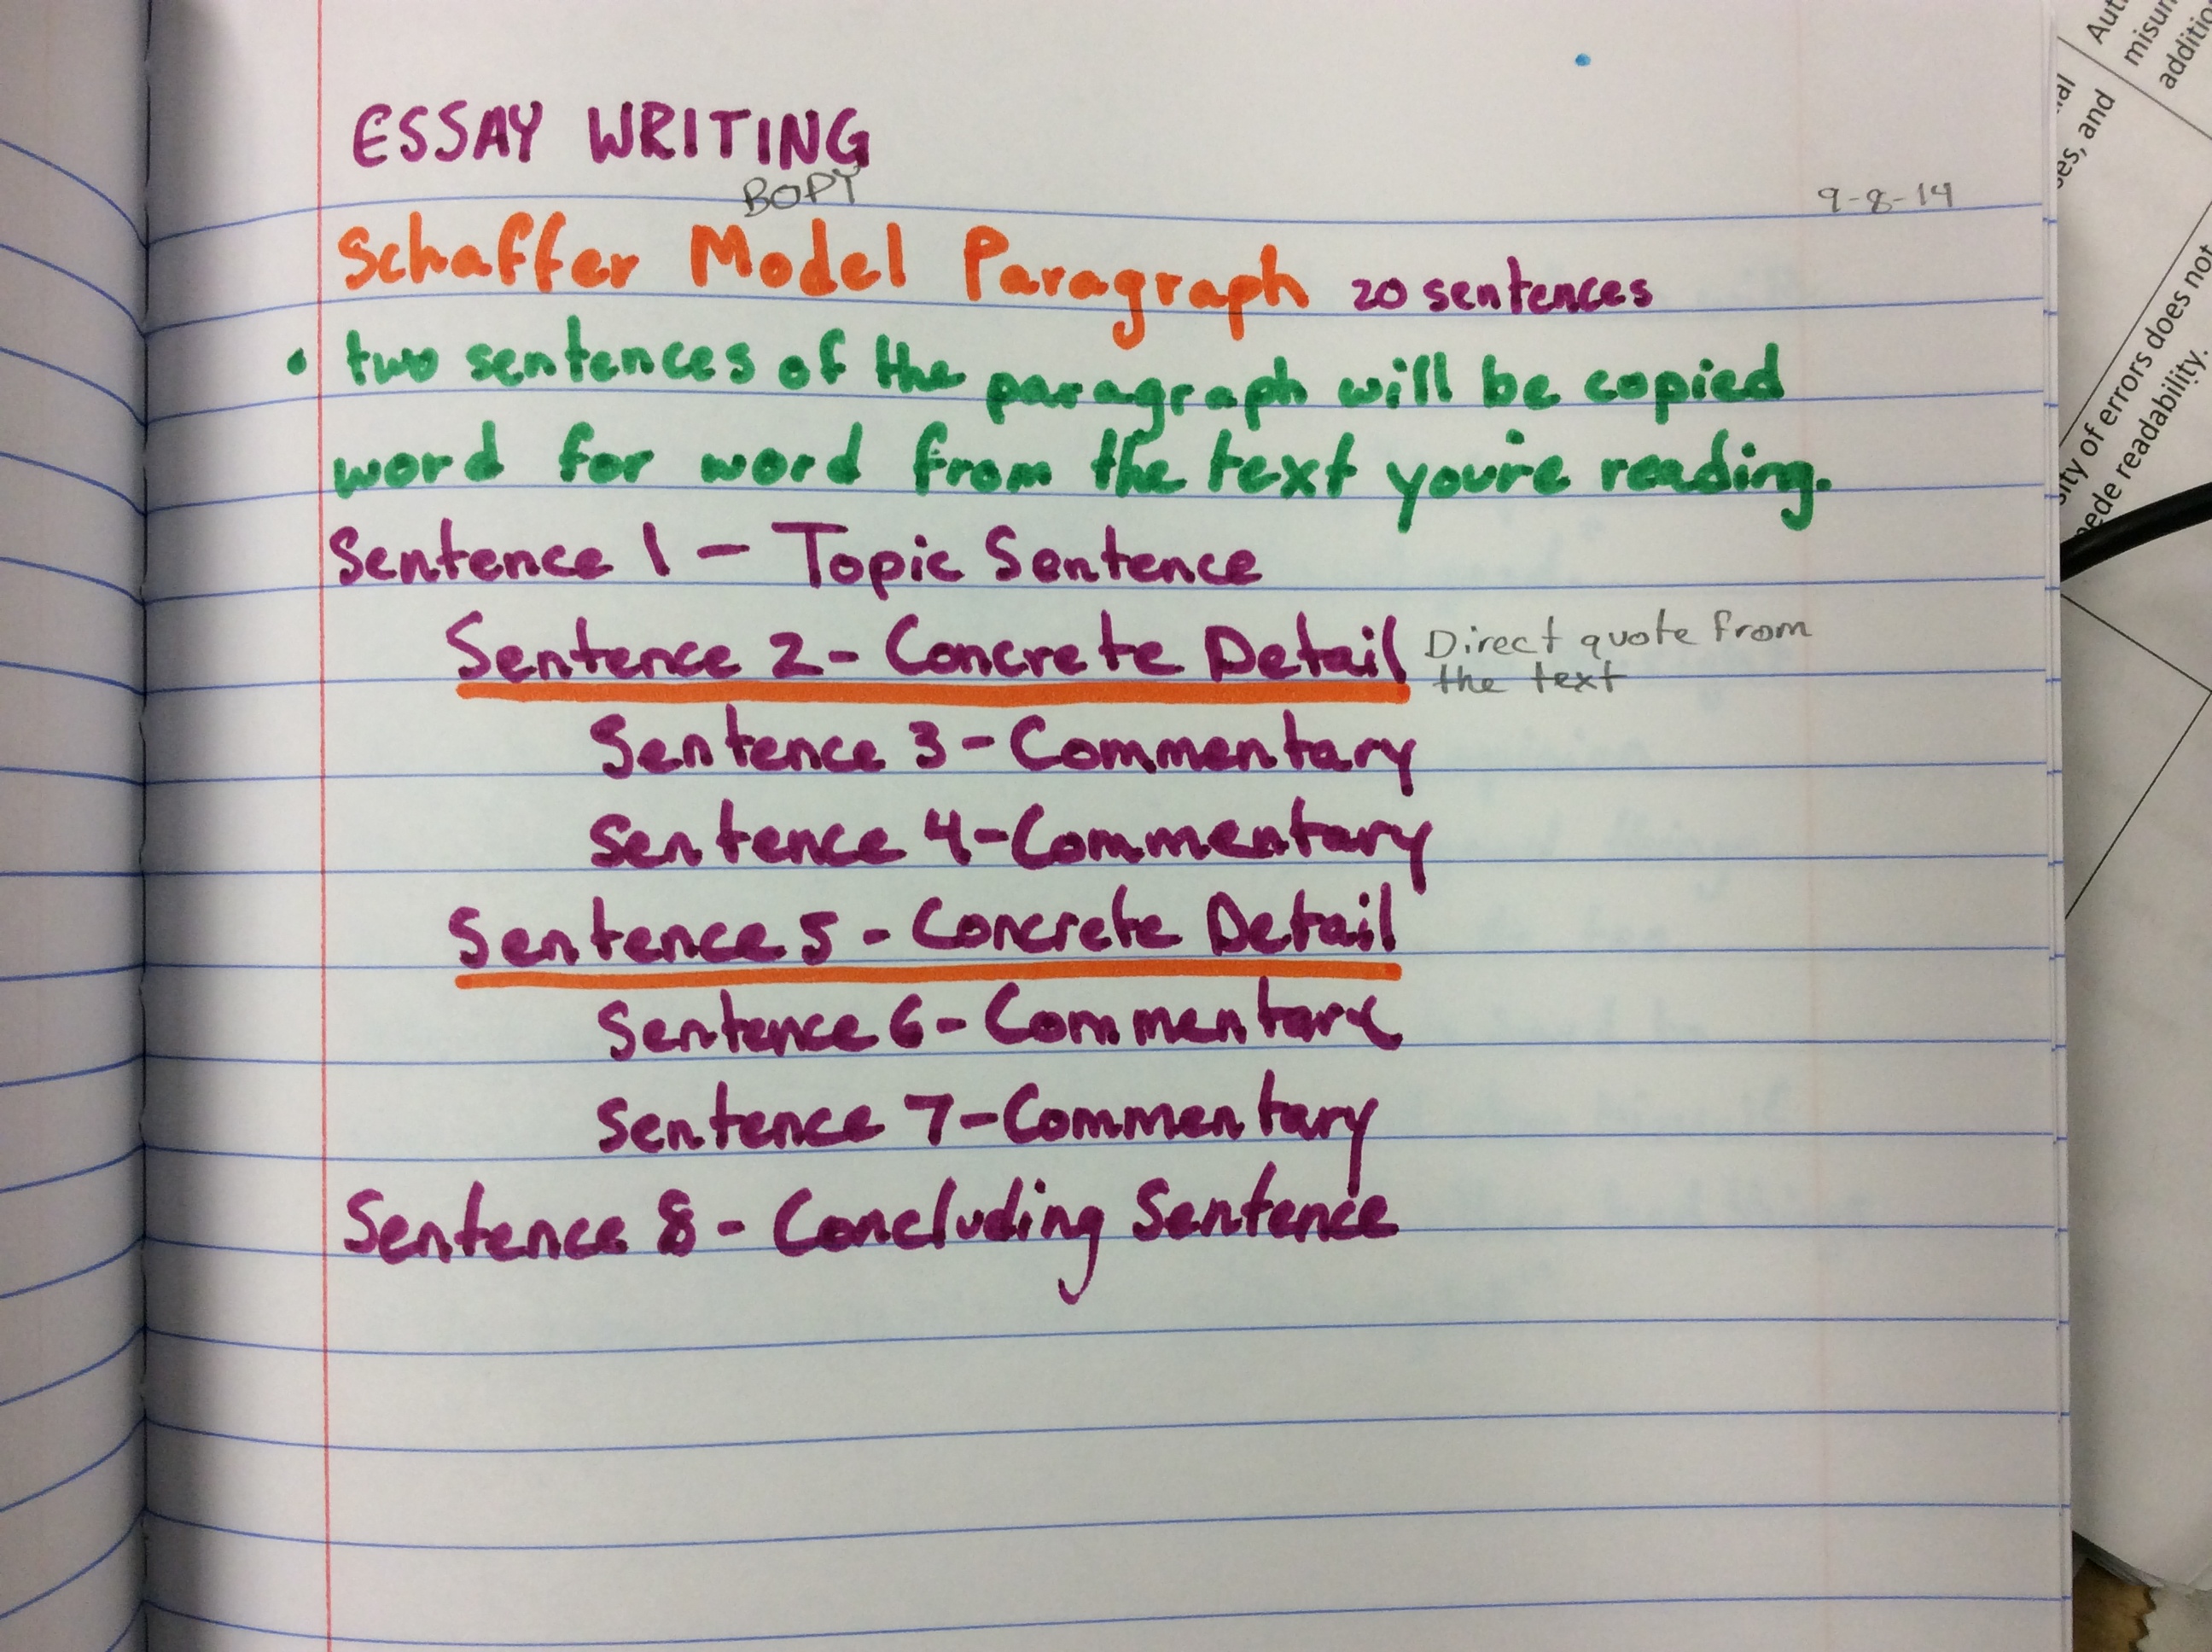 ESSAY WRITING
BODY
9-8-14
Schaffer Model Paragraph 20 sentences
• two sentences of the paragraph will be copied
word for word from the text you're reading.
Sentence 1 - Topic Sentence
Sentence 2 - Concrete Detail
Direct quote from
the text
Sentence 3 - Commentary
Sentence 4 - Commentary
Sentence 5 - Concrete Detail
Sentence 6 - Commentary
Sentence 7 - Commentary
Sentence 8 - Concluding Sentence
misun
additio
ses, and
sity of errors does not
pede readability.